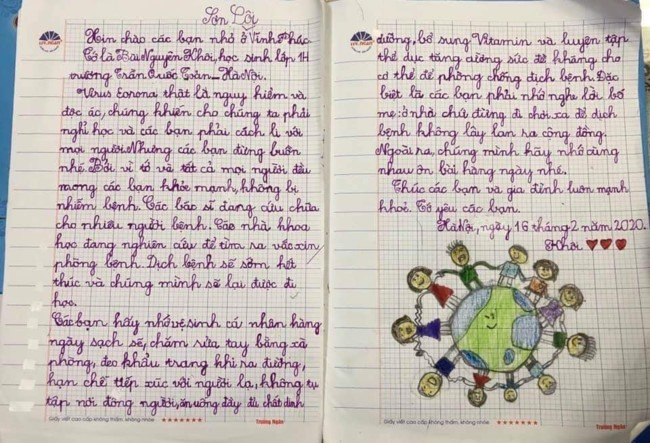 Sơn Lôi
Xin chào các bạn nhỏ ở Vĩnh Phúc.
Tớ là Bùi Nguyên Khôi, học sinh lớp 1H
trường Trần Quốc Toản - Hà Nội.
Virus Corona thật là nguy hiểm và
độc ác, chúng khiến cho chúng ta phải
nghỉ học và các bạn phải cách li với
mọi người. Nhưng các bạn đừng buồn
nhé. Bởi vì tớ và tất cả mọi người đều
mong các bạn khỏe mạnh, không bị
nhiễm bệnh. Các bác sĩ đang cứu chữa
cho nhiều người bệnh. Các nhà khoa
học đang nghiên cứu để tìm ra vắc xin
phòng bệnh. Dịch bệnh sẽ sớm kết
thúc và chúng mình sẽ lại được đi
học.
Các bạn hãy nhớ vệ sinh cá nhân hàng
ngày sạch sẽ, chăm rửa tay bằng xà
phòng, đeo khẩu trang khi ra đường,
hạn chế tiếp xúc với người lạ, không tụ
tập nơi đông người, ăn uống đầy đủ chất dinh
Giấy viết cao cấp không thấm, không nhòe.
Trường Ngân
dưỡng, bổ sung Vitamin và luyện tập
thể dục tăng cường sức đề kháng cho
cơ thể để phòng chống dịch bệnh. Đặc
biệt là các bạn phải nhớ nghe lời bố
mẹ: ở nhà chứ đừng đi chơi xa để dịch
bệnh không lây lan ra cộng đồng.
Ngoài ra, chúng mình hãy nhớ cùng
nhau ôn bài hàng ngày nhé.
Chúc các bạn và gia đình luôn mạnh
khoẻ. Tớ yêu các bạn.
Hà Nội, ngày 16 tháng 2 năm 2020.
Khôi
Giấy viết cao cấp không thấm, không nhòe.
Trường Ngân